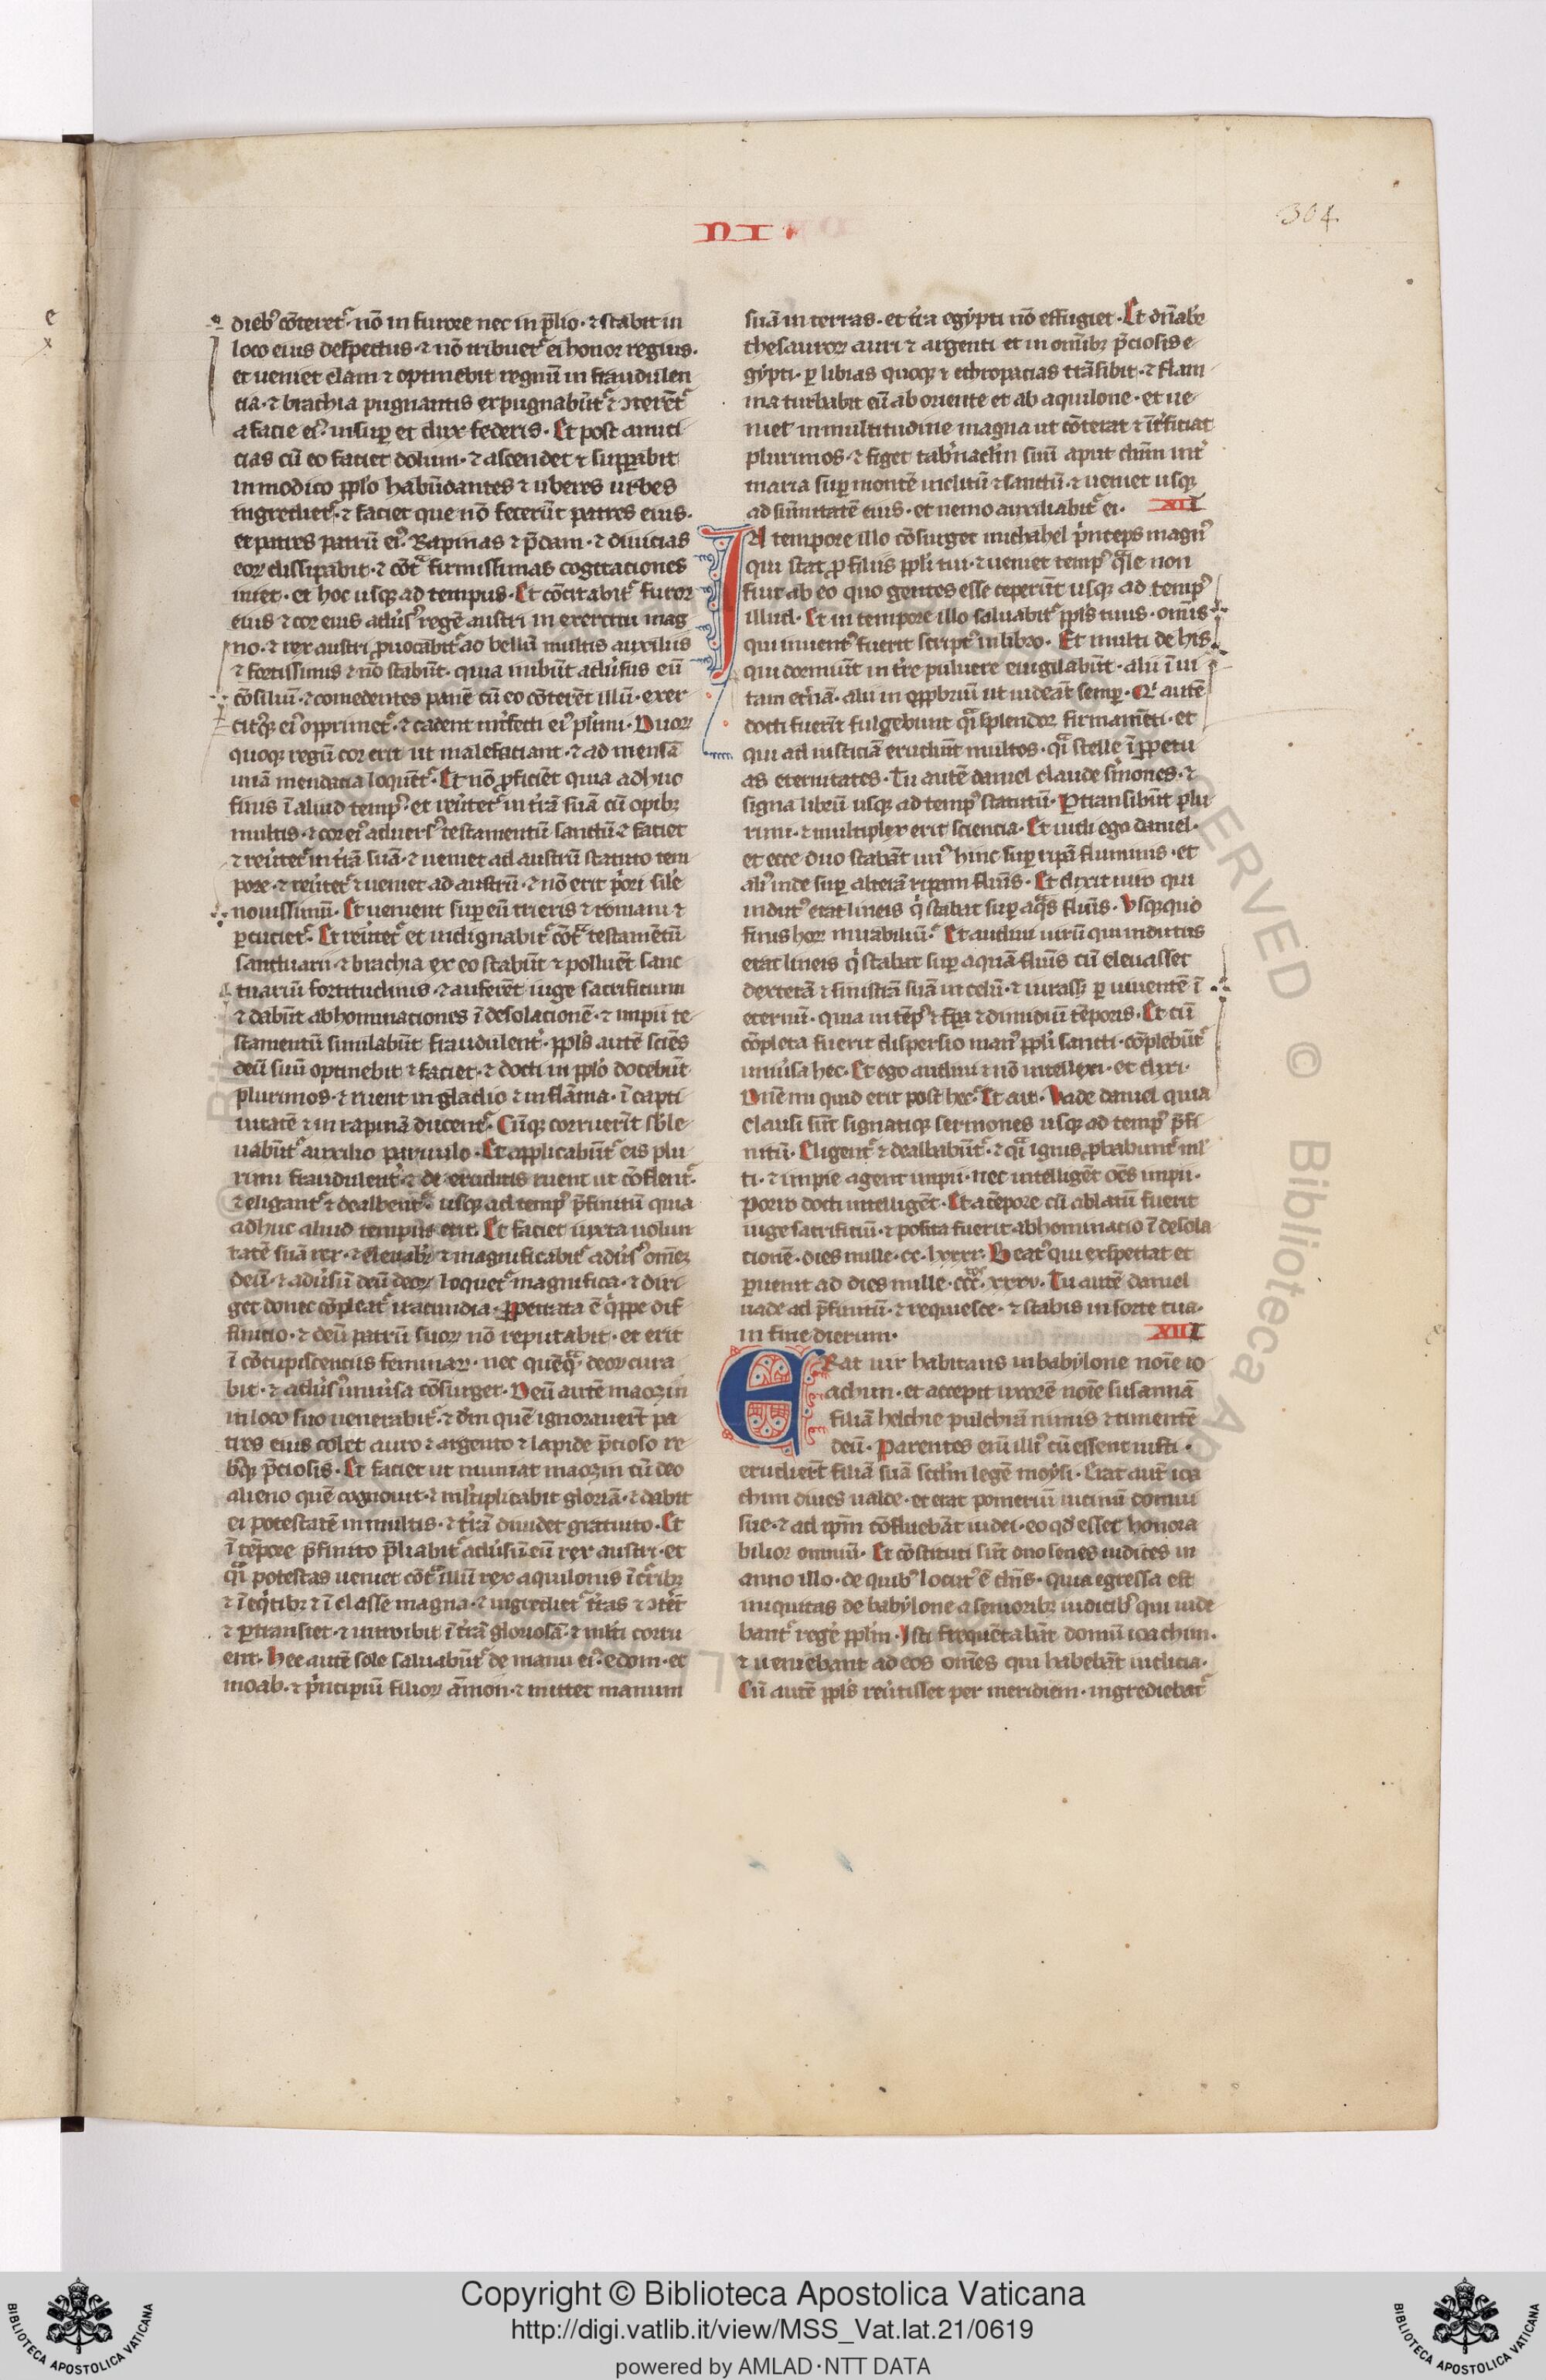 NI
304
dieb9 cōteret᷑ · nō in furore nec in p̄lio · ⁊ stabit in
loco eius despectus · ⁊ nō tribuet᷑ ei honor regius ·
et ueniet clam ⁊ optinebit regnū in fraudulen
tia · ⁊ brachia pugnantis expugnabūt᷑ ⁊ ꝯterēt᷑
a facie ei9 · insuꝑ et dux federis · Et post amici
cias cū eo faciet dolum · ⁊ ascendet ⁊ suꝑabit
in modico pplo habūdantes ⁊ uberes urbes
ingrediet᷑ · ⁊ faciet que nō fecerūt patres eius ·
et patres patrū ei9 · Rapinas ⁊ p̄dam · ⁊ diuicias
eoꝝ dissipabit · ⁊ cōt᷑ firmissimas cogitaciones
iniet · et hoc usqꝫ ad tempus · Et cōcitabit᷑ furor
eius ⁊ cor eius adu̾s9 regē austri in exercitu mag
no · ⁊ rex austri ꝓuocabit᷑ ad bellū multis auxiliis
⁊ fortissimis ⁊ nō stabūt · quia inibūt adu̾sus eū
cōsiliū · ⁊ comedentes panē cū eo cōterēt illū · exer
citqꝫ ei9 opprimet᷑ · ⁊ cadent int̾fecti ei9 pl̾imi · Duoꝝ
quoqꝫ regū cor erit ut malefaciant · ⁊ ad mensā
unā mendacia loquēt᷑ · Et nō ꝓficiēt quia adhuc
finis ī aliud temp9 · et reu̾tet᷑ in t̾rā suā cū opibꝫ
multis · ⁊ cor ei9 aduers9 testamentū sanctū ⁊ faciet
⁊ reu̾tet᷑ in t̾rā suā · ⁊ ueniet ad austrū statuto tem
pore · ⁊ reu̾tet᷑ ⁊ ueniet ad austrū · ⁊ nō erit p̾ori sil̾e
nouissimū · Et uenient suꝑ eū trieris ⁊ romani ⁊
ꝑcuciet᷑ · Et reu̾tet᷑ et indignabit᷑ cōt᷑ testamētū
sanctuarii · ⁊ brachia ex eo stabūt ⁊ polluēt sanc
tuariū fortitudinis · ⁊ auferēt iuge sacrificium
⁊ dabūt abhominaciones ī desolacionē · ⁊ impii te
stamentū simulabūt fraudulent̾ · ppl̾s autē sciēs
deū suū optinebit ⁊ faciet · ⁊ docti in pplo docebūt
plurimos · ⁊ ruent in gladio ⁊ in flāma · ī capti
uitatē ⁊ in rapinā dierū · Cūqꝫ corruerīt sble
uabūt᷑ auxilio paruulo · Et applicabūt᷑ eis plu
rimi fraudulent̾ · ⁊ de eruditis ruent ut cōflent᷑ ·
⁊ eligant᷑ ⁊ dealbent᷑ · usqꝫ ad temp9 p̄finitū quia
adhuc aliud tempus erit · Et faciet iuxta uolun
tatē suā rex · ⁊ eleuabit᷑ ⁊ magnificabit᷑ adu̾s9 omēꝫ
deū · ⁊ adu̾sū deū deoꝝ loquet᷑ magnifica · ⁊ diri
get donec cōpleat᷑ iracundia · Ppetrata ē q̾ppe dif
finicio · ⁊ deū patrū suoꝝ nō reputabit · et erit
ī cōcupiscenciis feminaꝝ · nec quēqᷓ deoꝝ cura
bit · ⁊ adu̾s9 uniu̾sa cōsurget · Deū autē maozin
in loco suo uenerabit᷑ · ⁊ dm̄ quē ignorauert̄ pa
tres eius colet auro ⁊ argento ⁊ lapide p̄cioso re
bqꝫ p̄ciosis · Et faciet ut muniat maozin cū deo
alieno quē cognouit · ⁊ ml̾tiplicabit gloriā · ⁊ dabit
ei potestatē in multis · ⁊ t̾rā diuidet gratuito · Et
ī tēpore p̄finito p̄liabit᷑ adu̾sū eū rex austri · et
qᷓi potestas ueniet cōt᷑ illū rex aquilonis ī c̾ribꝫ
⁊ ī eq̾tibꝫ ⁊ ī classe magna · ⁊ ingrediet᷑ t̾ras ⁊ ꝯt̾et
⁊ ꝑtransiet · ⁊ introibit ī t̾rā gloriosā · ⁊ ml̾ti corru
ent · Hee autē sole saluabūt᷑ de manu ei9 · edom · et
moab · ⁊ p̾ncipiū filioꝝ āmon · ⁊ mittet manum
suā in terras · et t̾ra egypti nō effugiet · Et dn̄abit᷑
thesauroꝝ auri ⁊ argenti et in omībꝫ p̄ciosis e
gypti · ꝑ libias quoqꝫ ⁊ ethiopicias trāsibit · ⁊ fam
ma turbabit eū ab oriente et ab aquilone · et ue
niet in multitudine magna ut cōterat ⁊ īt̾ficiat
plurimos · ⁊ figet tab̾naclm̄ suū aput thūm int̾
maria suꝑ montē inclitū ⁊ sanctū · ⁊ ueniet usqꝫ
ad sūmitatē eius · et nemo auxiliabit᷑ ei · XII
IN tempore illo cōsurget michahel p̾nceps magn9
qui stat ꝓ filiis ppl̾i tui · ⁊ ueniet temp9 qᷓle non
fiut ab eo quo gentes esse ceperūt usqꝫ ad temp9
illud · Et in tempore illo saluabit᷑ ppl̾s tuus · omīs
qui inuent9 fuerit script9 in libro · Et multi de his
qui dormiūt in t̾re puluere euigilabūt · alii ī ui
tam et̾nā · alii in opprbriū ut uideāt semꝑ · Q̾ autē
docti fuerīt fulgebunt qᷓi splendor firmamēti · et
qui ad iusticiā erudiūt multos · qᷓi stelle ī ppetu
as eternitates · Tu autē daniel claude s̾mones · ⁊
signa librū usqꝫ ad temp9 statutū · Ptransibūt plu
rimi · ⁊ multiplex erit sciencia · Et uidi ego daniel ·
et ecce duo stabāt un9 hinc suꝑ ripā fluminis · et
ali9 inde suꝑ alterā ripam flūis · Et dixit uiro qui
indut9 erat lineis q̾ stabat suꝑ aqᷓs flūis · Vsqꝫquo
finis hoꝝ mirabiliū · Et audiui uirū qui indutus
erat lineis q̾ stabat suꝑ aquā flūis cū eleuasset
dexterā ⁊ sinistrā suā in celū · ⁊ iurass̾ ꝑ uiuentē ī
eternū · quia in tēp9 ⁊ tp̄a ⁊ dimidiū tēporis · Et cū
cōpleta fuerit dispersio man9 ppl̾i sancti · cōplebūt᷑
uniu̾sa hec · Et ego audiui ⁊ nō intellexi · et dixi ·
Dn̄e mi quid erit post hec · Et ait · Vade daniel quia
clausi sūt signatiqꝫ sermones usqꝫ ad temp9 p̄fi
nitū · Eligent᷑ ⁊ dealbabūt᷑ · ⁊ qᷓi ignis ꝓbabunt᷑ ml̾
ti · ⁊ impie agent impii · nec intelligēt oēs impii ·
Porro docti intelligēt · Et a tēpore cū ablatū fuerit
iuge sacrificiū · ⁊ posita fuerit abhominacio ī desola
cionē · dies mille · cc · lxxxx · Beat9 qui exspectat et
ꝑuenit ad dies mille · ccc · xxxv · Tu autē daniel
uade ad p̄finitū · ⁊ requiesce · ⁊ stabis in sorte tua ·
in fine dierum · XIII
ERat uir habitans in babylone noīe io
achim · et accepit uxorē noīe susannā
filiā helchie pulchrā nimis ⁊ timentē
deū · Parentes eni illi9 cū essent iusti ·
erudiert̄ filiā suā scdm̄ legē moysi · Erat aut̄ ioa
chim diues ualde · et erat pomeriū uicinū domui
sue · ⁊ ad ip̄m cōfluebāt iudei · eo qd̾ esset honora
bilior omniū · Et cōstituti sūt duo senes iudices in
anno illo · de quib9 locut9 ē dn̄s · quia egressa est
iniquitas de babylone a senioribꝫ iudicib9 qui uide
bant᷑ reg̾e pplm̄ · Isti frequētabāt domū ioachim ·
⁊ ueniebant ad eos omēs qui habebāt iudicia ·
Cū autē ppl̾s reu̾tisset per meridiem · ingrediebat᷑
Copyright © Biblioteca Apostolica Vaticana
http://digi.vatlib.it/view/MSS_Vat.lat.21/0619
powered by AMLAD·NTT DATA
BIBLIOTECA APOSTOLICA VATICANA
BIBLIOTECA APOSTOLICA VATICANA